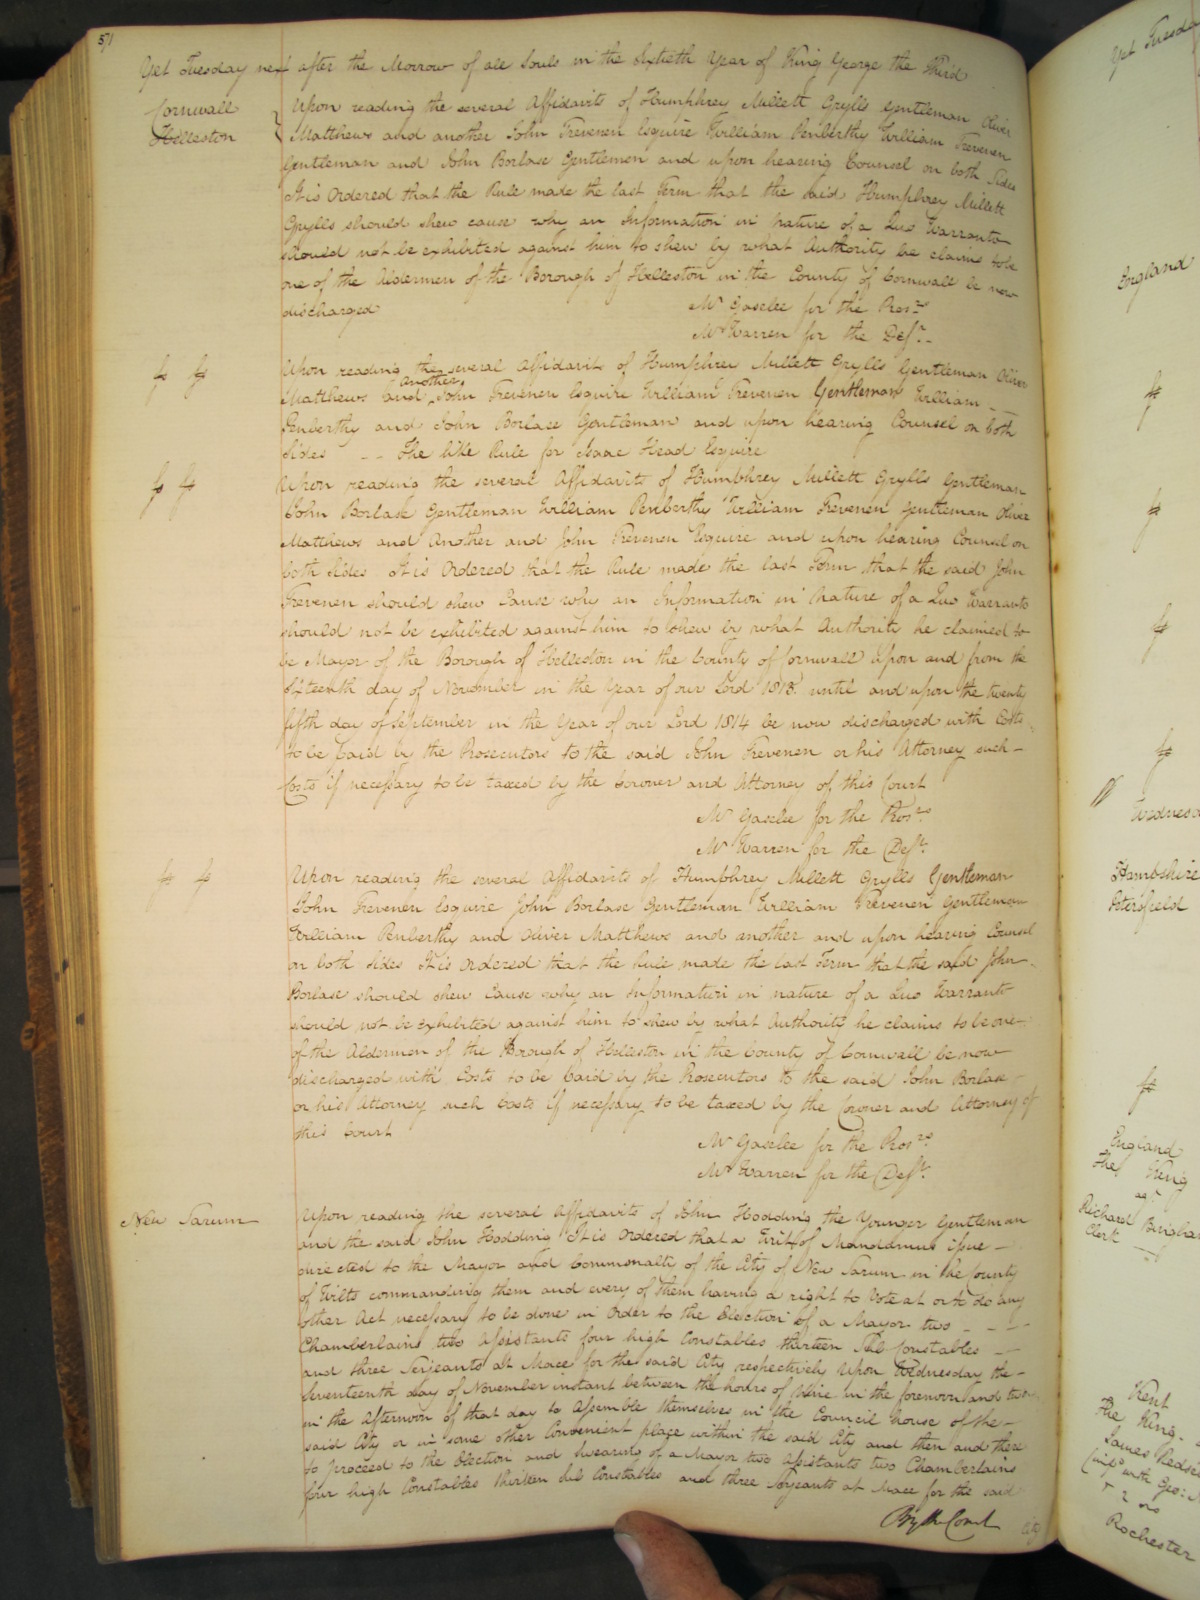 571
Yet Tuesday next after the Morrow of all Souls in the Sixtieth Year of King George the Third
Cornwall
Helleston
Upon reading the several Affidavits of Humphrey Millett Grylls Gentleman Oliver
Matthews and another John Trevenen Esquire William Penberthy William Trevenen
Gentleman and John Borlase Gentlemen and upon hearing Counsel on both Sides
It is Ordered that the Rule made the last Term that the said Humphrey Millett
Grylls should shew cause why an Information in nature of a Quo Warranto
should not be exhibited against him to shew by what Authority he claims to be
one of the Aldermen of the Borough of Helleston in the County of Cornwall be now
discharged
Mr Gaselee for the Pros.rs
Mr Warren for the Def.t
Upon reading the several Affidavits of Humphrey Millett Grylls Gentleman Oliver
Matthews and another John Trevenen Esquire William Trevenen Gentleman William
Penberthy and John Borlase Gentleman and upon hearing Counsel on both
Sides -- The like Rule for Isaac Head Esquire
Upon reading the several Affidavits of Humphrey Millett Grylls Gentleman
John Borlase Gentleman William Penberthy William Trevenen Gentleman Oliver
Matthews and Another and John Trevenen Esquire and upon hearing Counsel on
both Sides It is Ordered that the Rule made the last Term that the said John
Trevenen should shew Cause why an Information in nature of a Quo Warranto
should not be exhibited against him to shew by what Authority he claimed to
be Mayor of the Borough of Helleston in the County of Cornwall upon and from the
day of November in the Year of our Lord 1813 until and upon the twenty
fifth day of September in the Year of our Lord 1814 be now discharged with Costs
to be paid by the Prosecutors to the said John Trevenen or his Attorney such
Costs if necessary to be taxed by the Coroner and Attorney of this Court
Mr Gaselee for the Pros.rs
Mr Warren for the Def.t
Upon reading the several Affidavits of Humphrey Millett Grylls Gentleman
John Trevenen Esquire John Borlase Gentleman William Trevenen Gentleman
William Penberthy and Oliver Matthews and another and upon hearing Counsel
on both Sides It is Ordered that the Rule made the last Term that the said John
Borlase should shew Cause why an Information in nature of a Quo Warranto
should not be exhibited against him to shew by what Authority he claims to be one
of the Aldermen of the Borough of Helleston in the County of Cornwall be now
discharged with Costs to be paid by the Prosecutors to the said John Borlase
or his Attorney such Costs if necessary to be taxed by the Coroner and Attorney of
this Court
Mr Gaselee for the Pros.rs
Mr Warren for the Def.t
New Sarum
Upon reading the several Affidavits of John Hodding the Younger Gentleman
and the said John Hodding It is Ordered that a Writ of Mandamus issue
directed to the Mayor and Commonalty of the City of New Sarum in the County
of Wilts commanding them and every of them having a right to Vote at or to do any
other Act necessary to be done in Order to the Election of a Mayor two
Chamberlains two Assistants four high Constables thirteen Sub Constables
and three Serjeants at Mace for the said City respectively Upon Wednesday the
Seventeenth day of November instant between the hours of Nine in the forenoon and two
in the Afternoon of that day to Assemble themselves in the Council house of the
said City or in some other Convenient place within the said City and then and there
to proceed to the Election and Swearing of a Mayor two Assistants two Chamberlains
four high Constables thirteen Sub Constables and three Serjeants at Mace for the said
By the Court
City
Yet Tuesda
England
Wednesd
Hampshire
Petersfield
England
The King
agt
Richard Brigha
Clerk
Kent
The King
James Redse
Rochester